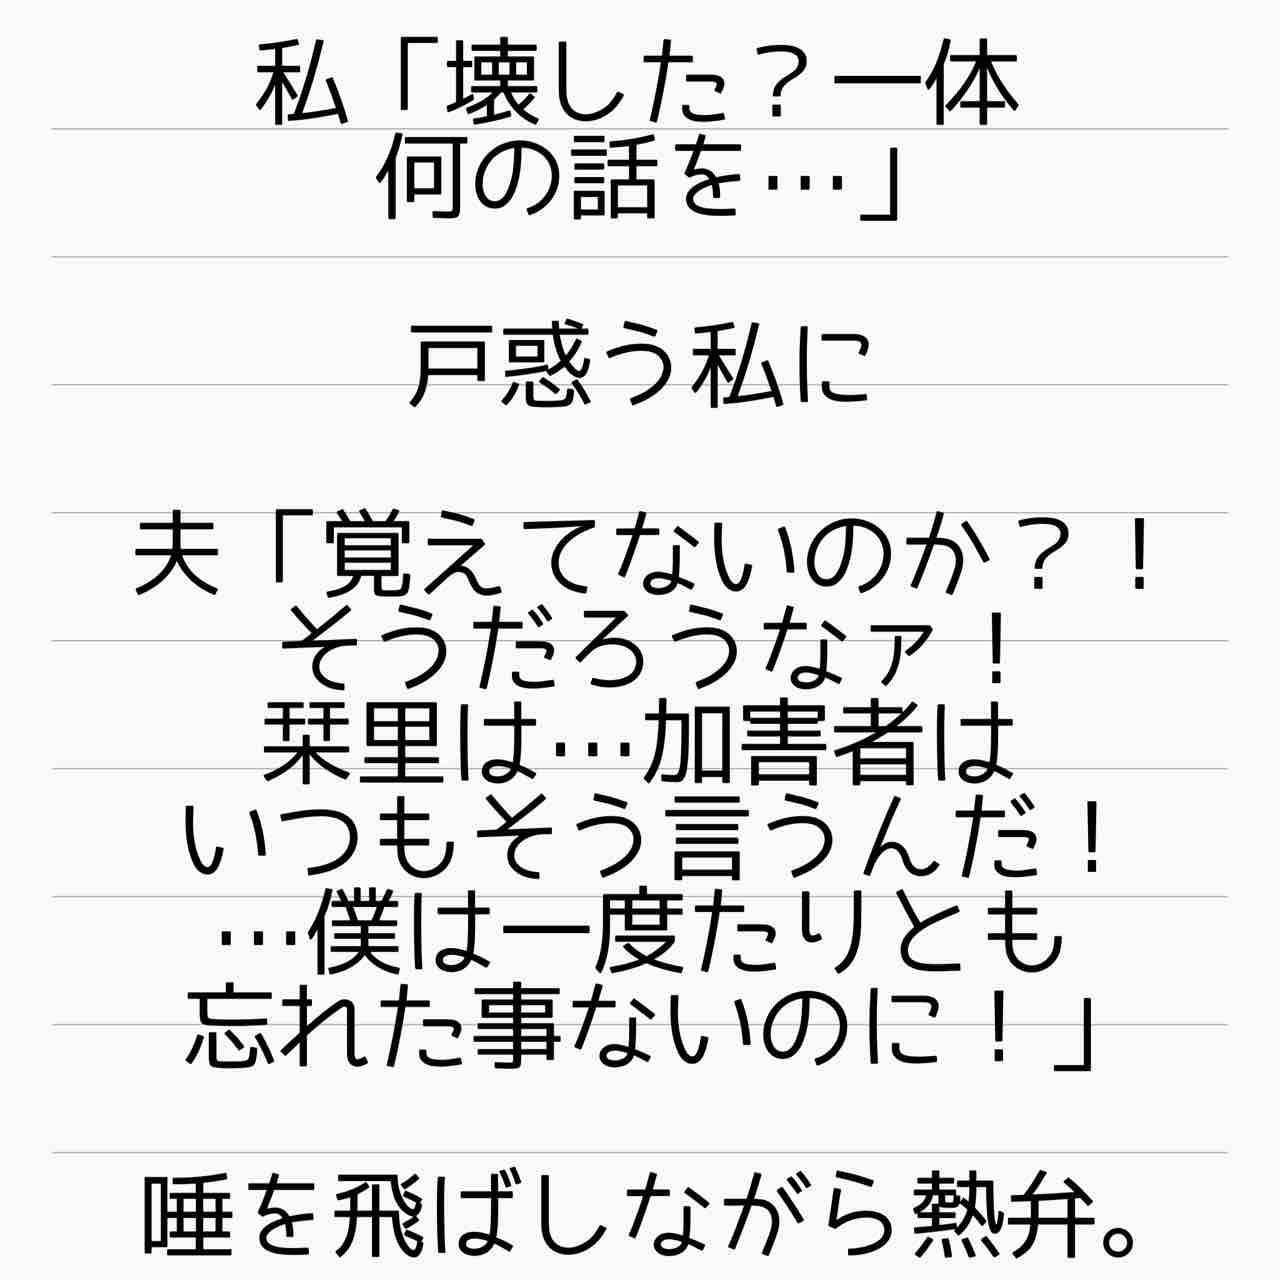 私「壊した？一体
何の話を…」
戸惑う私に
夫「覚えてないのか？！
そうだろうなァ！
栞里は…加害者は
いつもそう言うんだ！
…僕は一度たりとも
忘れた事ないのに！」
唾を飛ばしながら熱弁。